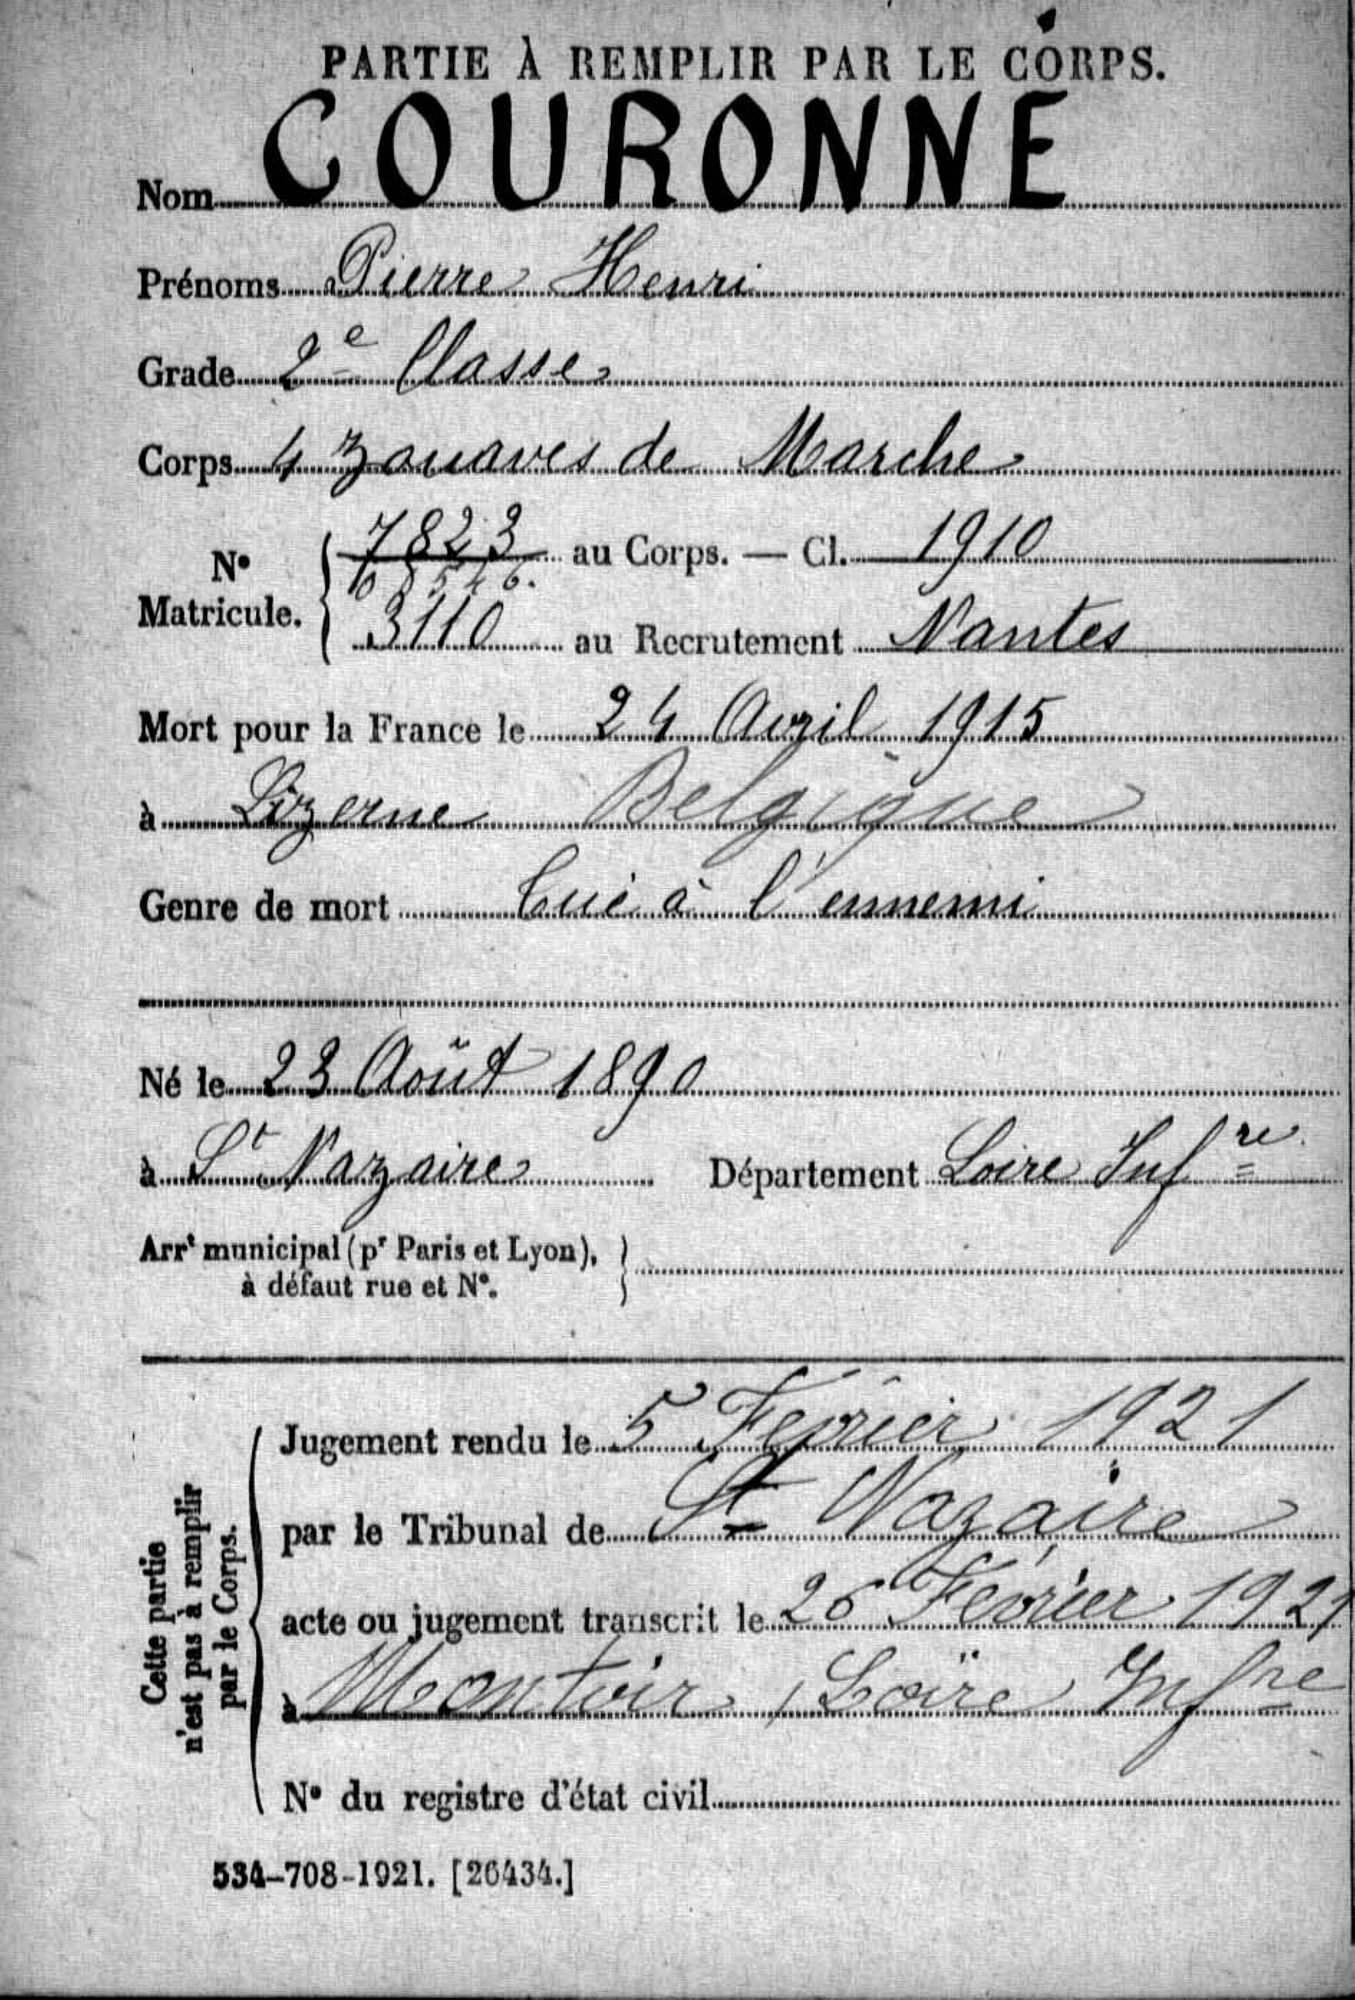 PARTIE À REMPLIR PAR LE CORPS.
Nom COURONNE
Prénoms Pierre Henri
Grade 2e Classe
Corps 4 zouaves de Marche
No Matricule. 7823 au Corps. — Cl. 1910
3110 au Recrutement Nantes
Mort pour la France le 24 Avril 1915
à Lizerne Belgique
Genre de mort Tué à l'ennemi
Né le 23 Août 1890
à St Nazaire Département Loire Infre
Arrt municipal (pr Paris et Lyon),
à défaut rue et No.
Cette partie
n'est pas à remplir
par le Corps.
Jugement rendu le 5 Février 1921
par le Tribunal de St Nazaire
acte ou jugement transcrit le 26 Février 1921
à Montoir, Loire Infre
No du registre d'état civil
534-708-1921. [26434.]